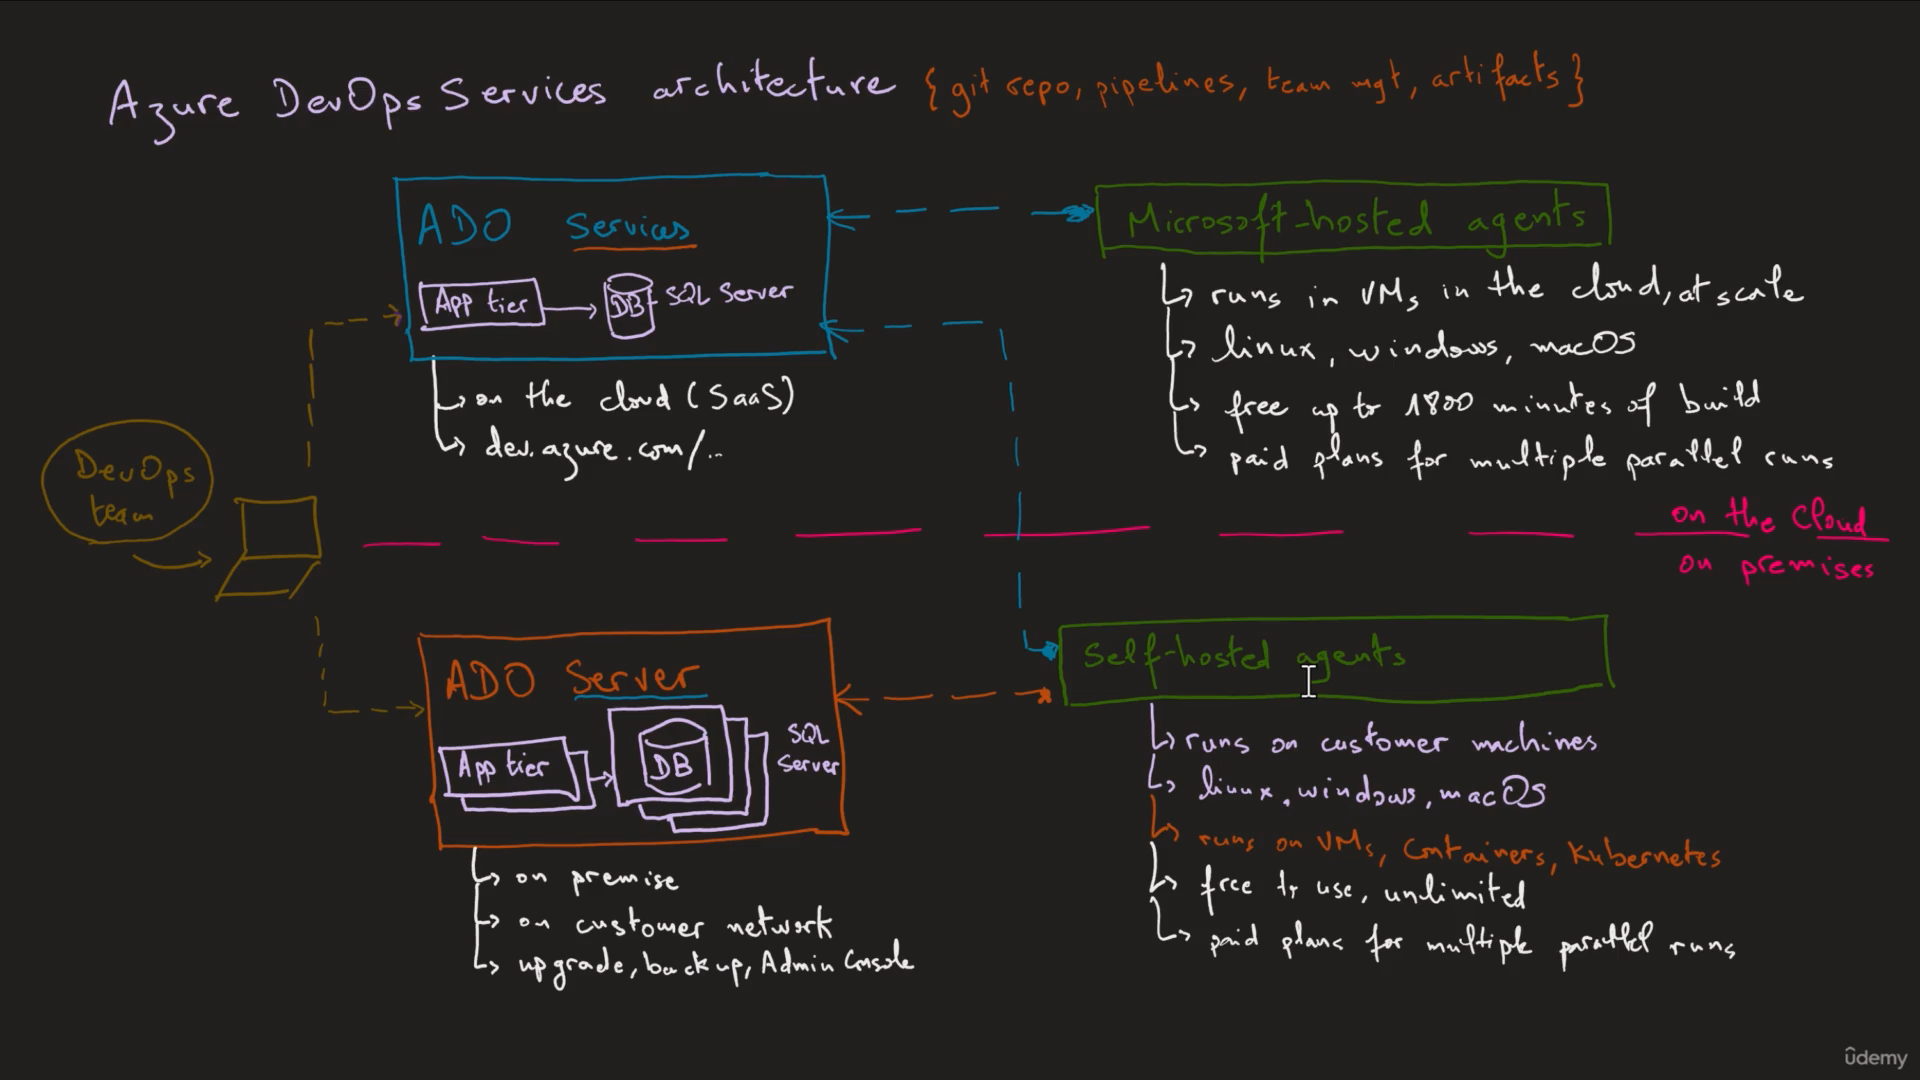 Azure DevOps Services architecture {git repo, pipelines, team mgt, artifacts}
ADO Services
App tier
DB
SQL Server
on the cloud (SaaS)
dev.azure.com/..
Microsoft-hosted agents
runs in VMs in the cloud, at scale
linux, windows, macOS
free up to 1800 minutes of build
paid plans for multiple parallel runs
DevOps
team
on the Cloud
on premises
ADO Server
App tier
DB
SQL
Server
on premise
on customer network
upgrade, backup, Admin Console
Self-hosted agents
runs on customer machines
linux, windows, macOS
runs on VMs, Containers, Kubernetes
free to use, unlimited
paid plans for multiple parallel runs
ûdemy